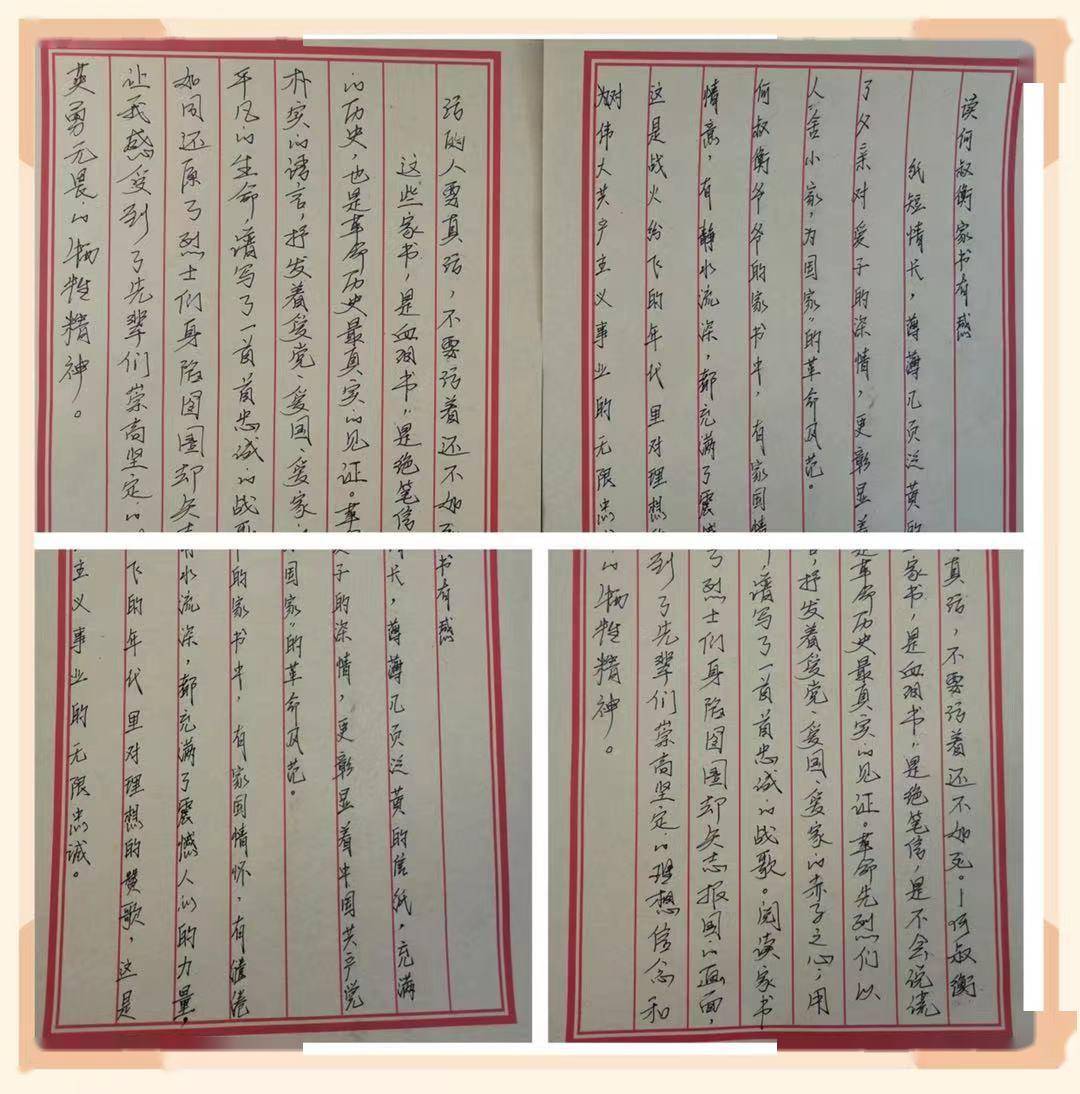 活的人要真活，不要活着还不如死
这些家书，是血泪书，是绝笔信
的历史，也是革命历史最真实的见证。革
朴实的语言，抒发着爱党、爱国、爱家的
平凡的生命，谱写了一首首忠诚的战歌
如同还原了烈士们身陷囹圄却矢志
让我感受到了先辈们崇高坚定的
英勇无畏的牺牲精神。
读何叔衡家书有感
纸短情长，薄薄几页泛黄的
了父亲对爱子的深情，更彰显着
人“舍小家，为国家”的革命风范。
何叔衡爷爷的家书中，有家国情
情意，有静水流深，都充满了震憾
这是战火纷飞的年代里对理想的
对伟大共产主义事业的无限忠
书有感
情长，薄薄几页泛黄的信纸，充满
子的深情，更彰显着中国共产党
国家”的革命风范。
的家书中，有家国情怀，有缱绻
水流深，都充满了震憾人心的力量。
飞的年代里对理想的赞歌，这是
主义事业的无限忠诚。
真活，不要活着还不如死。—何叔衡
家书，是血泪书，是绝笔信，是不会说谎
是革命历史最真实的见证。革命先烈们以
言，抒发着爱党、爱国、爱家的赤子之心；用
谱写了一首首忠诚的战歌。阅读家书
了烈士们身陷囹圄却矢志报国的画面，
到了先辈们崇高坚定的理想信念和
的牺牲精神。